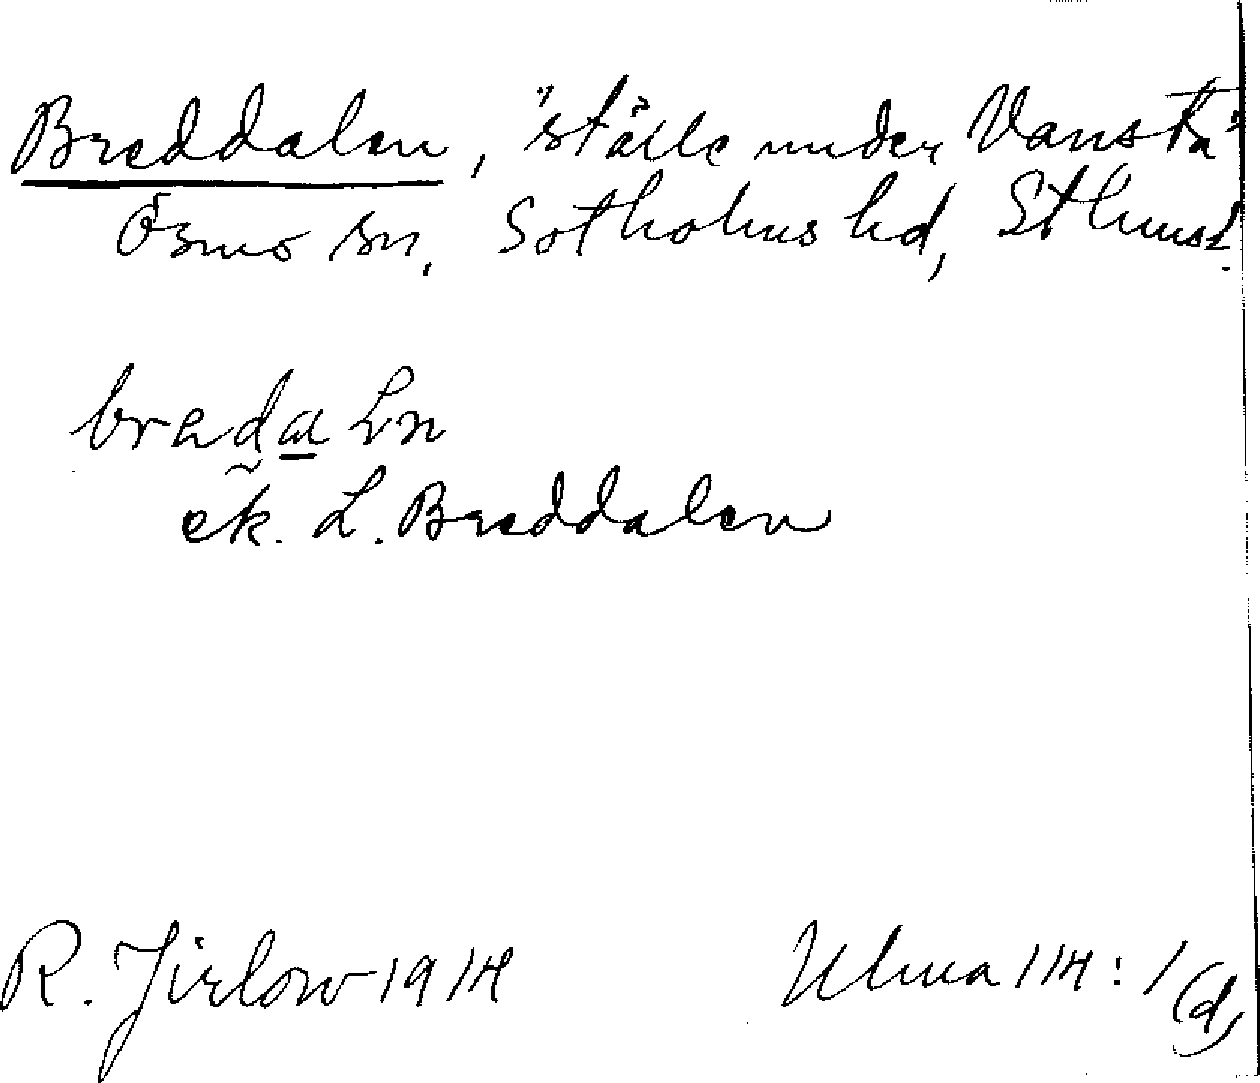 Breddalen, "ställe under Vansta"
Ösmo sn, Sotholms hd, Sthms l.
ek. L. Breddalen
R. Jirlow 1914
Ulma 114:1 (d)